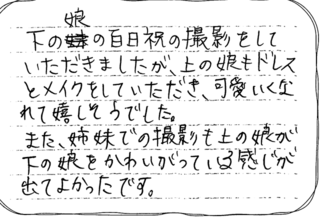 娘
下の妹の百日祝の撮影をして
いただきましたが、上の娘もドレス
とメイクをしていただき、可愛いくな
れて嬉しそうでした。
また、姉妹での撮影も上の娘が
下の娘をかわいがっている感じが
出てよかったです。